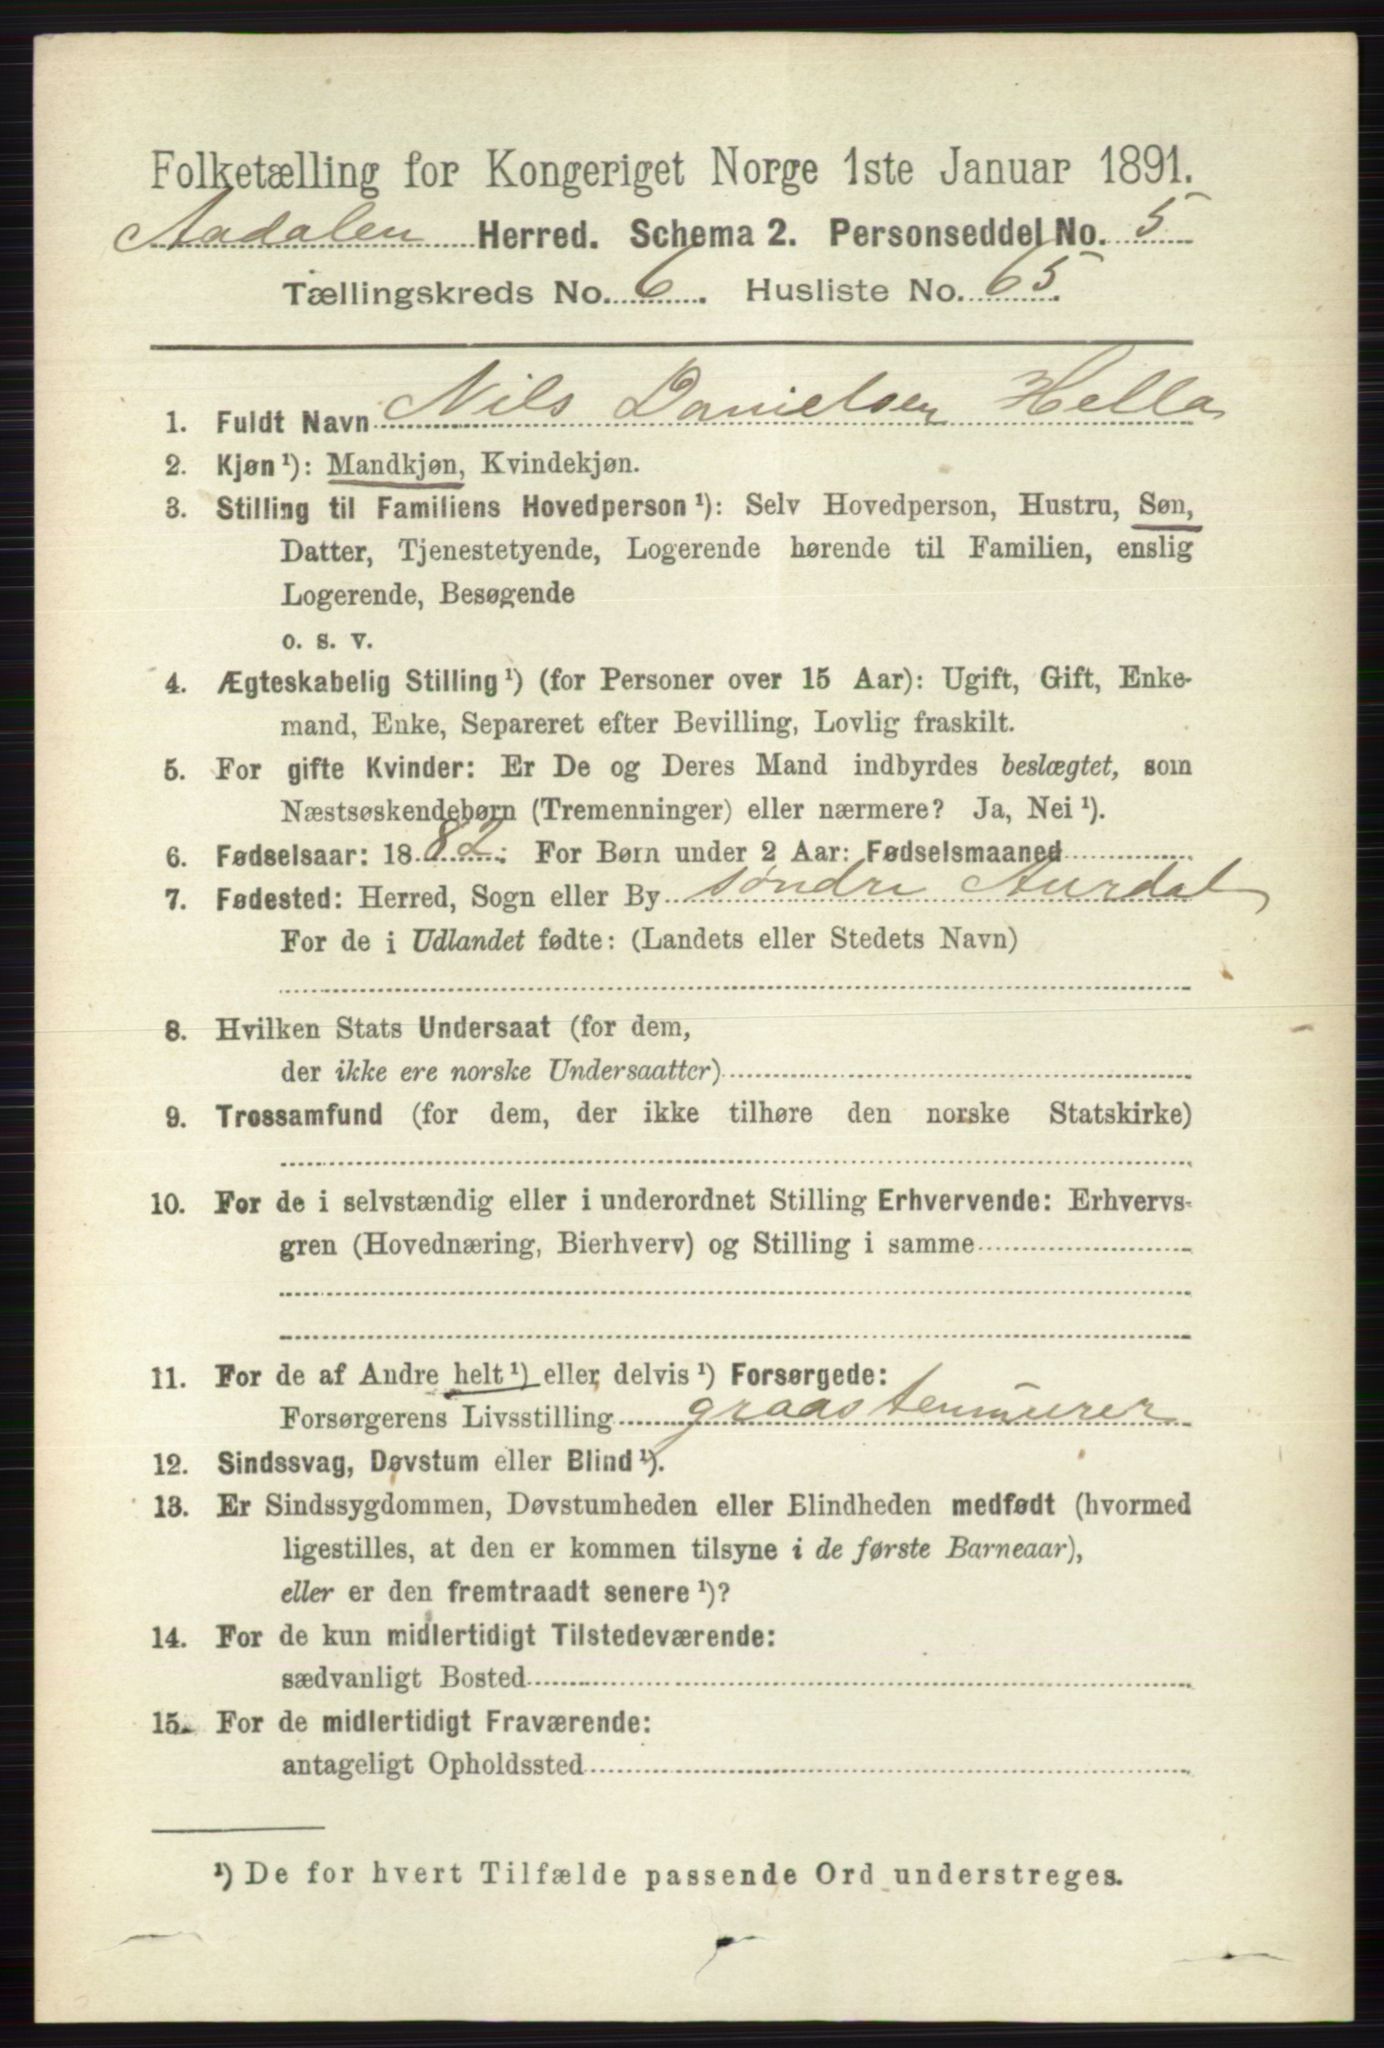 Folketælling for Kongeriget Norge 1ste Januar 1891.
Aadalen Herred. Schema 2. Personseddel No. 5
Tællingskreds No. 6. Husliste No. 65.
1. Fuldt Navn Nils Danielsen Hella
2. Kjøn¹): Mandkjøn, Kvindekjøn.
3. Stilling til Familiens Hovedperson¹): Selv Hovedperson, Hustru, Søn,
Datter, Tjenestetyende, Logerende hørende til Familien, enslig
Logerende, Besøgende
o. s. v.
4. Ægteskabelig Stilling¹) (for Personer over 15 Aar): Ugift, Gift, Enke-
mand, Enke, Separeret efter Bevilling, Lovlig fraskilt.
5. For gifte Kvinder: Er De og Deres Mand indbyrdes beslægtet, som
Næstsøskendebørn (Tremenninger) eller nærmere? Ja, Nei¹).
6. Fødselsaar: 1882: For Børn under 2 Aar: Fødselsmaaned
7. Fødested: Herred, Sogn eller By søndre Aurdal
For de i Udlandet fødte: (Landets eller Stedets Navn)
8. Hvilken Stats Undersaat (for dem,
der ikke ere norske Undersaatter)
9. Trossamfund (for dem, der ikke tilhøre den norske Statskirke)
10. For de i selvstændig eller i underordnet Stilling Erhvervende: Erhvervs-
gren (Hovednæring, Bierhverv) og Stilling i samme
11. For de af Andre helt¹) eller delvis¹) Forsørgede:
Forsørgerens Livsstilling graastenmurer
12. Sindssvag, Døvstum eller Blind¹).
13. Er Sindssygdommen, Døvstumheden eller Blindheden medfødt (hvormed
ligestilles, at den er kommen tilsyne i de første Barneaar),
eller er den fremtraadt senere¹)?
14. For de kun midlertidigt Tilstedeværende:
sædvanligt Bosted
15. For de midlertidigt Fraværende:
antageligt Opholdssted
¹) De for hvert Tilfælde passende Ord understreges.